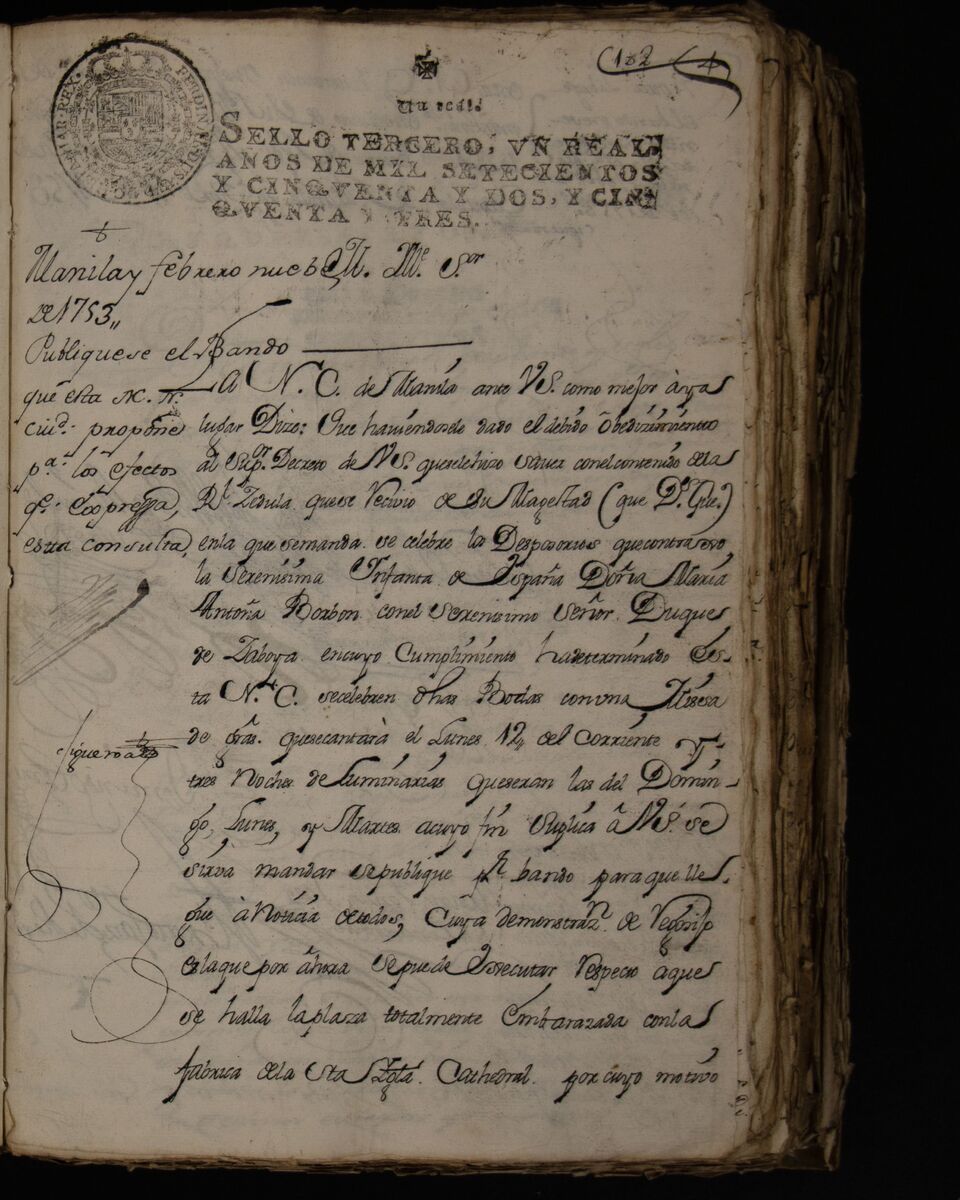 182
Un real
SELLO TERCERO, VN REAL,
AÑOS DE MIL SETECIENTOS
Y CINQVENTA Y DOS, Y CIN
QVENTA Y TRES.
Manila y febrero nuebe
de 1753,,
Publiquese el Bando
que esta N. N.
ciud. propone
pa. los efectos
qe. Expressa,
esta consulta,
Figueroa
M. Ille. Sor
LA N. C. de Manila ante VS. como mejor àya
lugar Dize: Que haviendosele dado el debido obedizimiento
al Supor. Decreto de VS. quese lehizo saver conel contenido dela
Rl. Zedula quese Recivio de Su Magestad (que Ds. Gue.)
enla que semanda se celebre los Desposorios que contraxo
la Serenisima Infanta de España Doña Maria
Antoña Borbon conel Serenisimo Señor Duque
de Zaboya encuyo Cumplimiento hadeterminado Es-
ta N. C. secelebren dhas Bodas con una Missa
de gras. quesecantarà el Lunes 12,, del Corriente Y
tres Noches de Luminarias queseran las del Domin-
go, Lunes, y Martes acuyo fin Suplica à VS. se
sirva mandar sepublique pr. bando paraque lle-
gue à Noticia detodos, Cuya demonstrazn. de Regosijo
eslaque por ahora sepuede Executar Respecto aque
se halla la plaza totalmente Embarazada con la
fabrica dela Sta Iglâ. Cathedral por cuyo motivo